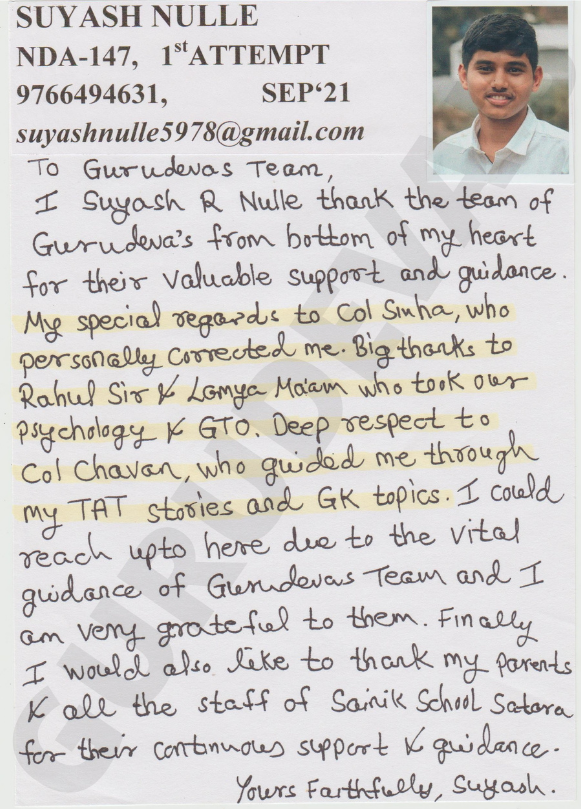 SUYASH NULLE
NDA-147, 1st ATTEMPT
9766494631, SEP‘21
suyashnulle5978@gmail.com
To Gurudevas Team,
I Suyash R Nulle thank the team of
Gurudeva's from bottom of my heart
for their valuable support and guidance.
My special regards to Col Sinha, who
personally corrected me. Big thanks to
Rahul Sir & Lamya Ma'am who took our
psychology & GTO. Deep respect to
Col Chavan, who guided me through
my TAT stories and GK topics. I could
reach upto here due to the vital
guidance of Gurudevas Team and I
am very grateful to them. Finally
I would also like to thank my parents
& all the staff of Sainik School Satara
for their continuous support & guidance.
Yours Faithfully, Suyash.
GURUDEVA